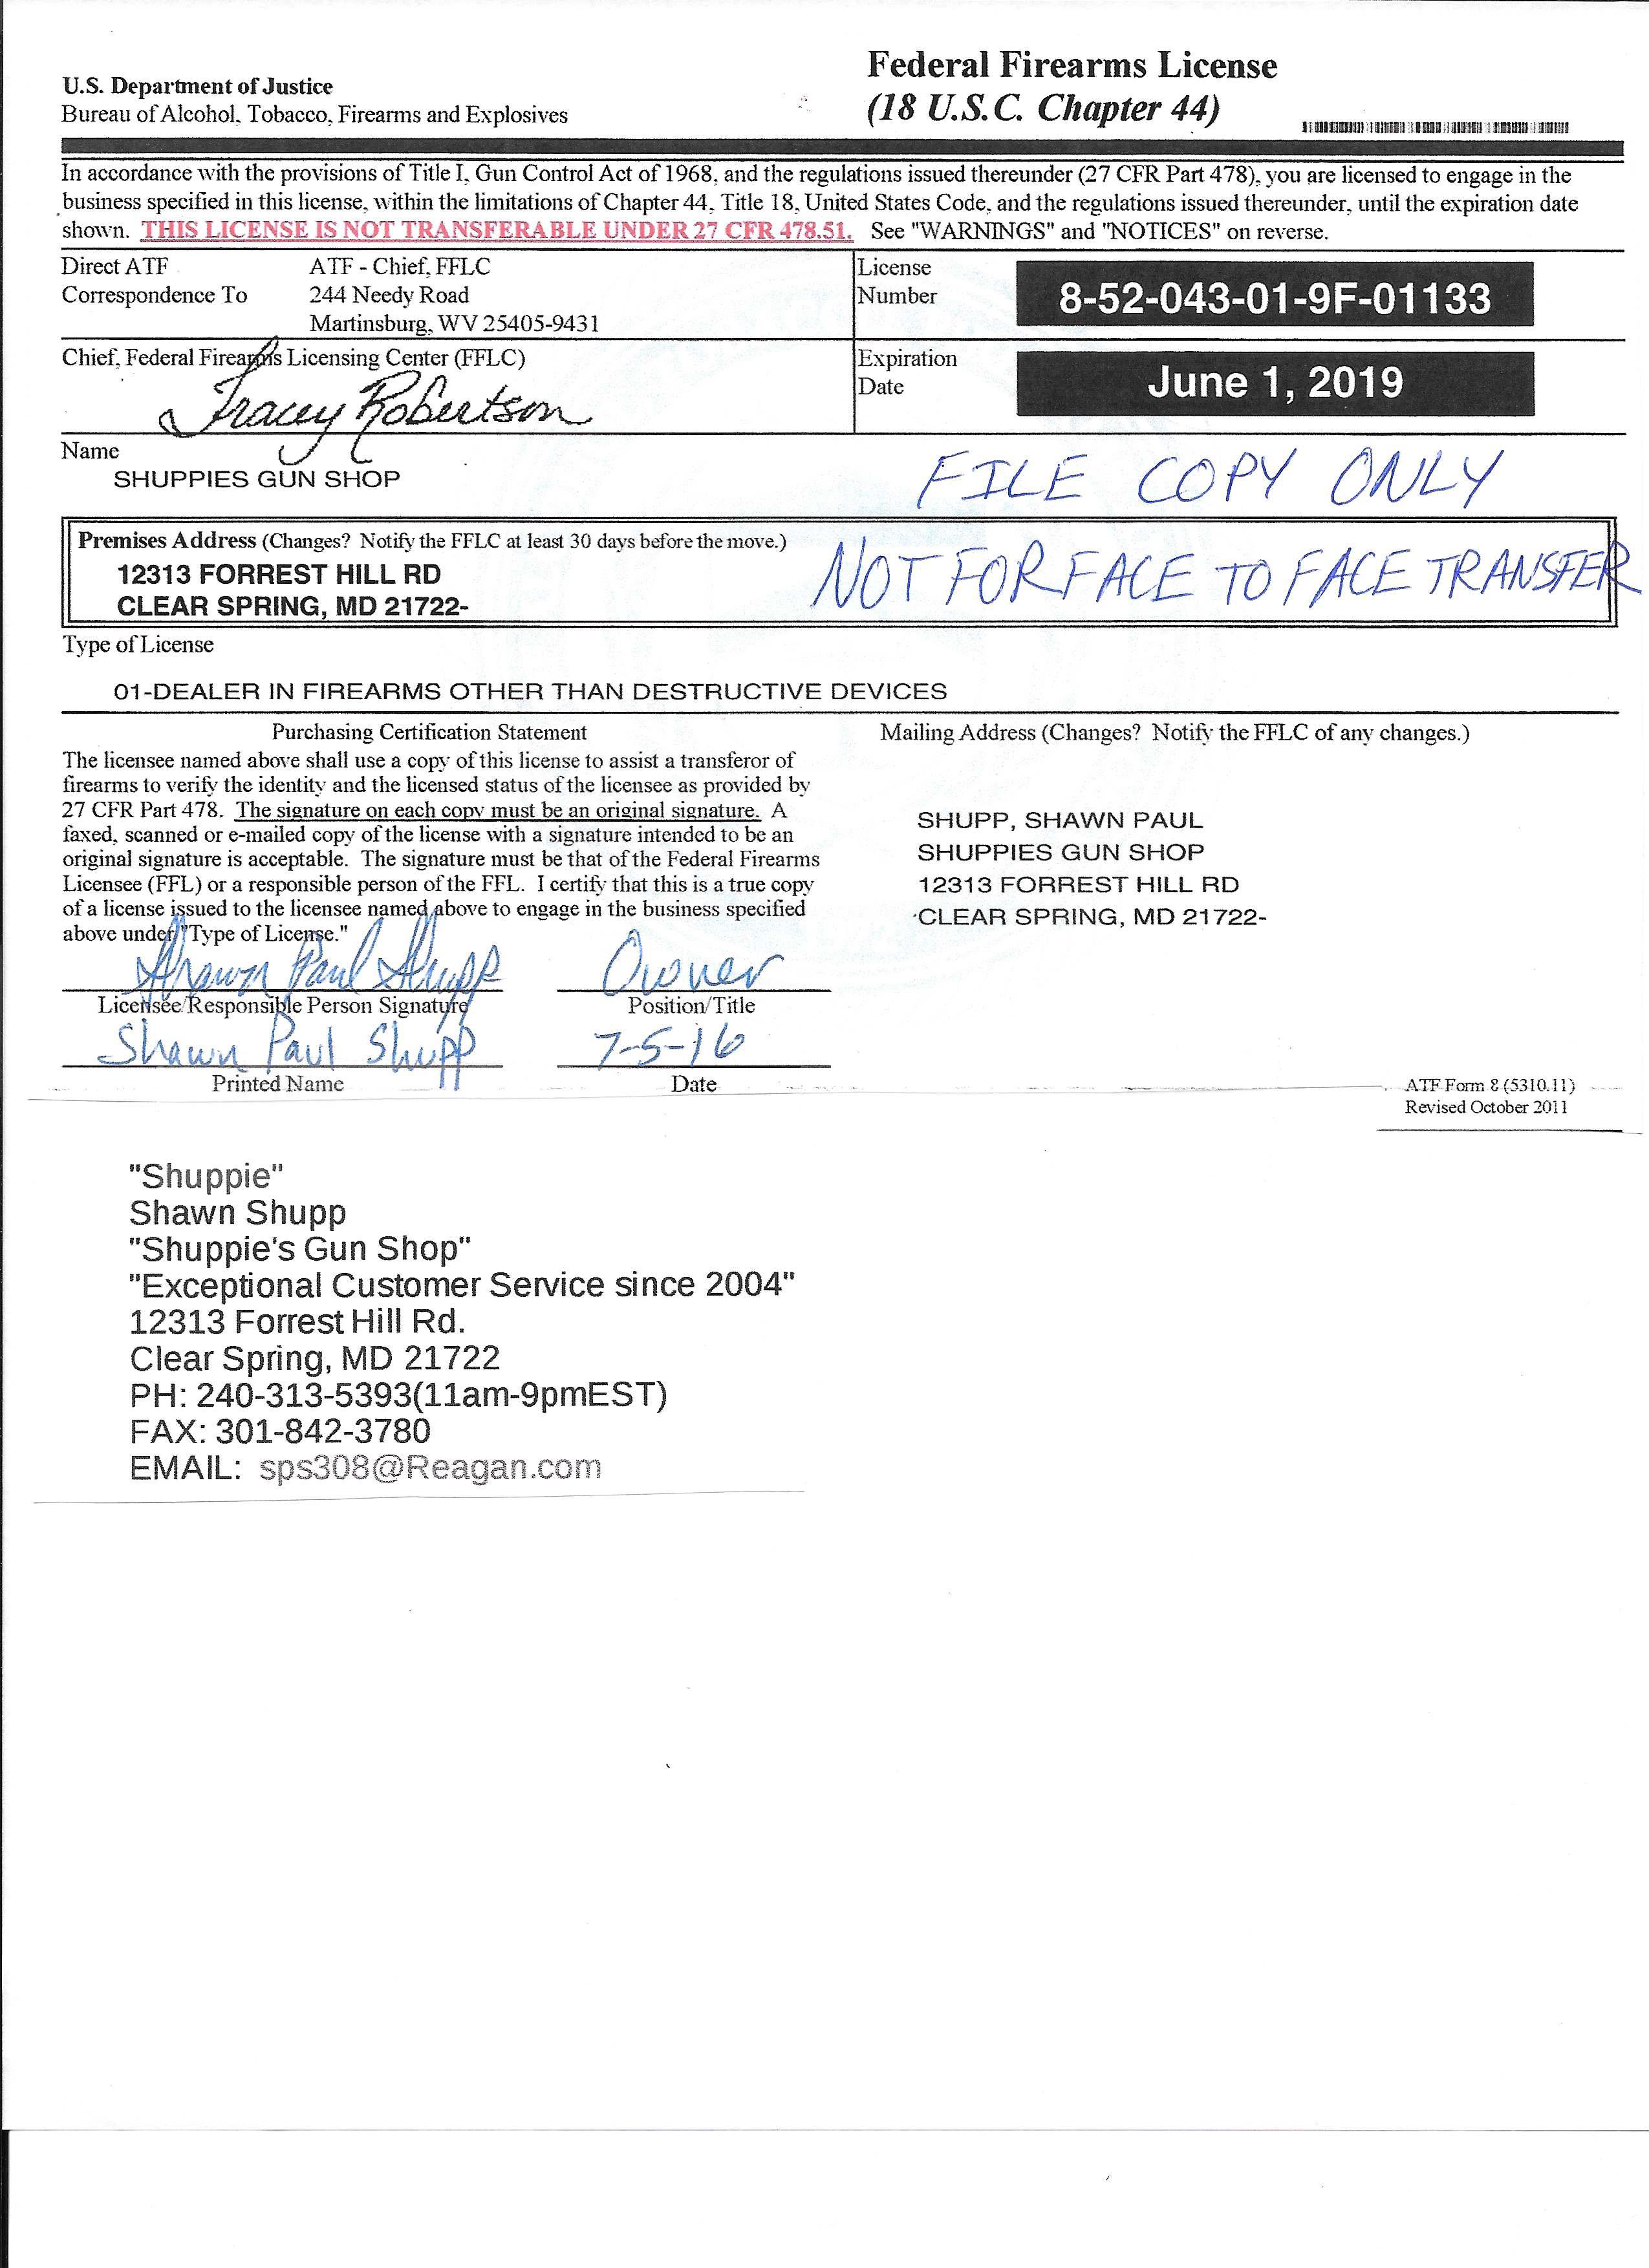 U.S. Department of Justice
Bureau of Alcohol, Tobacco, Firearms and Explosives
Federal Firearms License
(18 U.S.C. Chapter 44)
In accordance with the provisions of Title I, Gun Control Act of 1968, and the regulations issued thereunder (27 CFR Part 478), you are licensed to engage in the
business specified in this license, within the limitations of Chapter 44, Title 18, United States Code, and the regulations issued thereunder, until the expiration date
shown. THIS LICENSE IS NOT TRANSFERABLE UNDER 27 CFR 478.51. See "WARNINGS" and "NOTICES" on reverse.
Direct ATF
Correspondence To
ATF - Chief, FFLC
244 Needy Road
Martinsburg, WV 25405-9431
License
Number
8-52-043-01-9F-01133
Chief, Federal Firearms Licensing Center (FFLC)
Tracey Robertson
Expiration
Date
June 1, 2019
Name
SHUPPIES GUN SHOP
FILE COPY ONLY
Premises Address (Changes? Notify the FFLC at least 30 days before the move.)
12313 FORREST HILL RD
CLEAR SPRING, MD 21722-
NOT FOR FACE TO FACE TRANSFER
Type of License
01-DEALER IN FIREARMS OTHER THAN DESTRUCTIVE DEVICES
Purchasing Certification Statement
The licensee named above shall use a copy of this license to assist a transferor of
firearms to verify the identity and the licensed status of the licensee as provided by
27 CFR Part 478. The signature on each copy must be an original signature. A
faxed, scanned or e-mailed copy of the license with a signature intended to be an
original signature is acceptable. The signature must be that of the Federal Firearms
Licensee (FFL) or a responsible person of the FFL. I certify that this is a true copy
of a license issued to the licensee named above to engage in the business specified
above under "Type of License."
Mailing Address (Changes? Notify the FFLC of any changes.)
SHUPP, SHAWN PAUL
SHUPPIES GUN SHOP
12313 FORREST HILL RD
CLEAR SPRING, MD 21722-
Shawn Paul Shupp
Owner
Licensee/Responsible Person Signature
Position/Title
Shawn Paul Shupp
7-5-16
Printed Name
Date
ATF Form 8 (5310.11)
Revised October 2011
"Shuppie"
Shawn Shupp
"Shuppie's Gun Shop"
"Exceptional Customer Service since 2004"
12313 Forrest Hill Rd.
Clear Spring, MD 21722
PH: 240-313-5393(11am-9pmEST)
FAX: 301-842-3780
EMAIL: sps308@Reagan.com